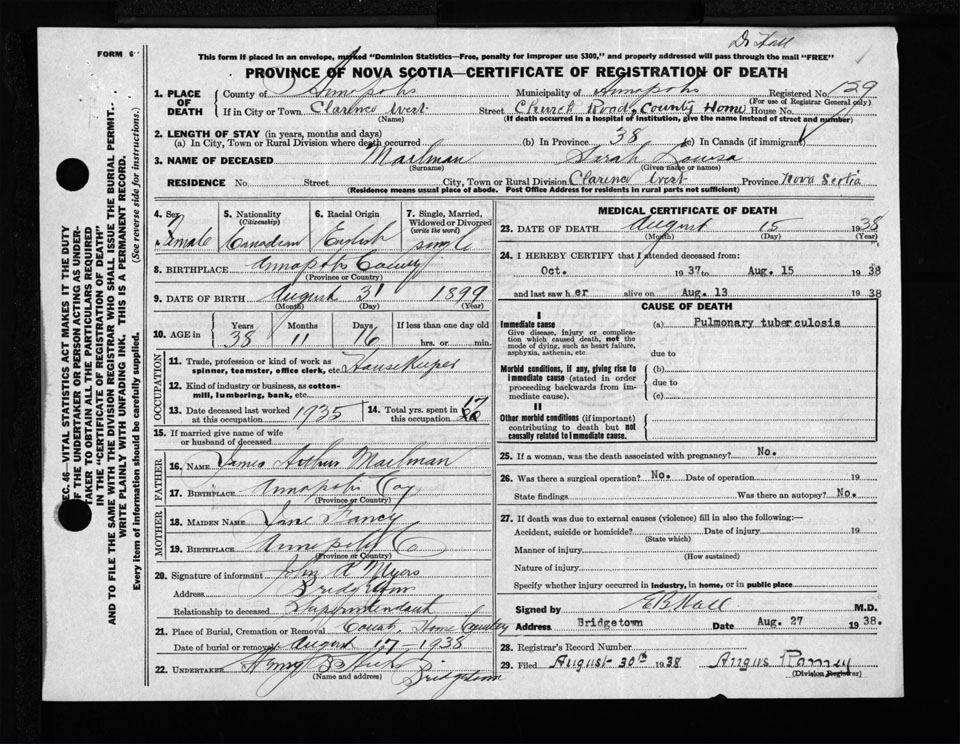 Dr Hall
FORM 6
This form if placed in an envelope, marked "Dominion Statistics—Free, penalty for improper use $300," and properly addressed will pass through the mail "FREE"
PROVINCE OF NOVA SCOTIA—CERTIFICATE OF REGISTRATION OF DEATH
1. PLACE OF DEATH
County of Annapolis Municipality of Annapolis Registered No. 129
(For use of Registrar General only)
If in City or Town Clarence West Street Church Road, County Home House No.
(Name) (If death occurred in a hospital of institution, give the name instead of street and number)
2. LENGTH OF STAY (in years, months and days)
(a) In City, Town or Rural Division where death occurred (b) In Province 38 (c) In Canada (if immigrant)
3. NAME OF DECEASED Mailman Sarah Louisa
(Surname) (Given name or names)
RESIDENCE No. Street City, Town or Rural Division Clarence West Province Nova Scotia
(Residence means usual place of abode. Post Office Address for residents in rural parts not sufficient)
4. Sex 5. Nationality (Citizenship) 6. Racial Origin 7. Single, Married, Widowed or Divorced (write the word)
Female Canadian English single
8. BIRTHPLACE Annapolis County
(Province or Country)
9. DATE OF BIRTH August 31 1899
(Month) (Day) (Year)
10. AGE in Years Months Days If less than one day old
38 11 16 hrs. or min.
OCCUPATION
11. Trade, profession or kind of work as spinner, teamster, office clerk, etc. HouseKeeper
12. Kind of industry or business, as cotton-mill, lumbering, bank, etc.
13. Date deceased last worked at this occupation 1935 14. Total yrs. spent in 17
15. If married give name of wife or husband of deceased
FATHER
16. NAME James Arthur Mailman
17. BIRTHPLACE Annapolis Coy
(Province or Country)
MOTHER
18. MAIDEN NAME Jane Fancy
19. BIRTHPLACE Annapolis Co
(Province or Country)
20. Signature of informant John R Myers
Address Bridgetown
Relationship to deceased Superintendant
21. Place of Burial, Cremation or Removal County Home Cemetery
Date of burial or removal August 17, 1938
22. UNDERTAKER Henry B Hicks Bridgetown
(Name and address)
MEDICAL CERTIFICATE OF DEATH
23. DATE OF DEATH August 15 1938
(Month) (Day) (Year)
24. I HEREBY CERTIFY that I attended deceased from:
Oct. 1937 to Aug. 15 1938
and last saw h er alive on Aug. 13 1938
CAUSE OF DEATH
I
Immediate cause (a) Pulmonary tuberculosis
Give disease, injury or complication which caused death, not the mode of dying, such as heart failure, asphyxia, asthenia, etc
due to
Morbid conditions, if any, giving rise to immediate cause (stated in order proceeding backwards from immediate cause).
(b)
due to
(c)
II
Other morbid conditions (if important) contributing to death but not causally related to immediate cause.
25. If a woman, was the death associated with pregnancy? No.
26. Was there a surgical operation? No. Date of operation 19
State findings Was there an autopsy? No.
27. If death was due to external causes (violence) fill in also the following:—
Accident, suicide or homicide? Date of injury 19
(State which)
Manner of injury
(How sustained)
Nature of injury
Specify whether injury occurred in industry, in home, or in public place
Signed by E B Hall M.D.
Address Bridgetown Date Aug. 27 1938.
28. Registrar's Record Number
29. Filed August 30th 1938 Angus Ramey
(Division Registrar)
SEC. 46—VITAL STATISTICS ACT MAKES IT THE DUTY
OF THE UNDERTAKER OR PERSON ACTING AS UNDER-
TAKER TO OBTAIN ALL THE PARTICULARS REQUIRED
IN THE "CERTIFICATE OF REGISTRATION OF DEATH"
AND TO FILE THE SAME WITH THE DIVISION REGISTRAR WHO SHALL ISSUE THE BURIAL PERMIT.
WRITE PLAINLY WITH UNFADING INK. THIS IS A PERMANENT RECORD.
Every item of information should be carefully supplied. (See reverse side for instructions.)